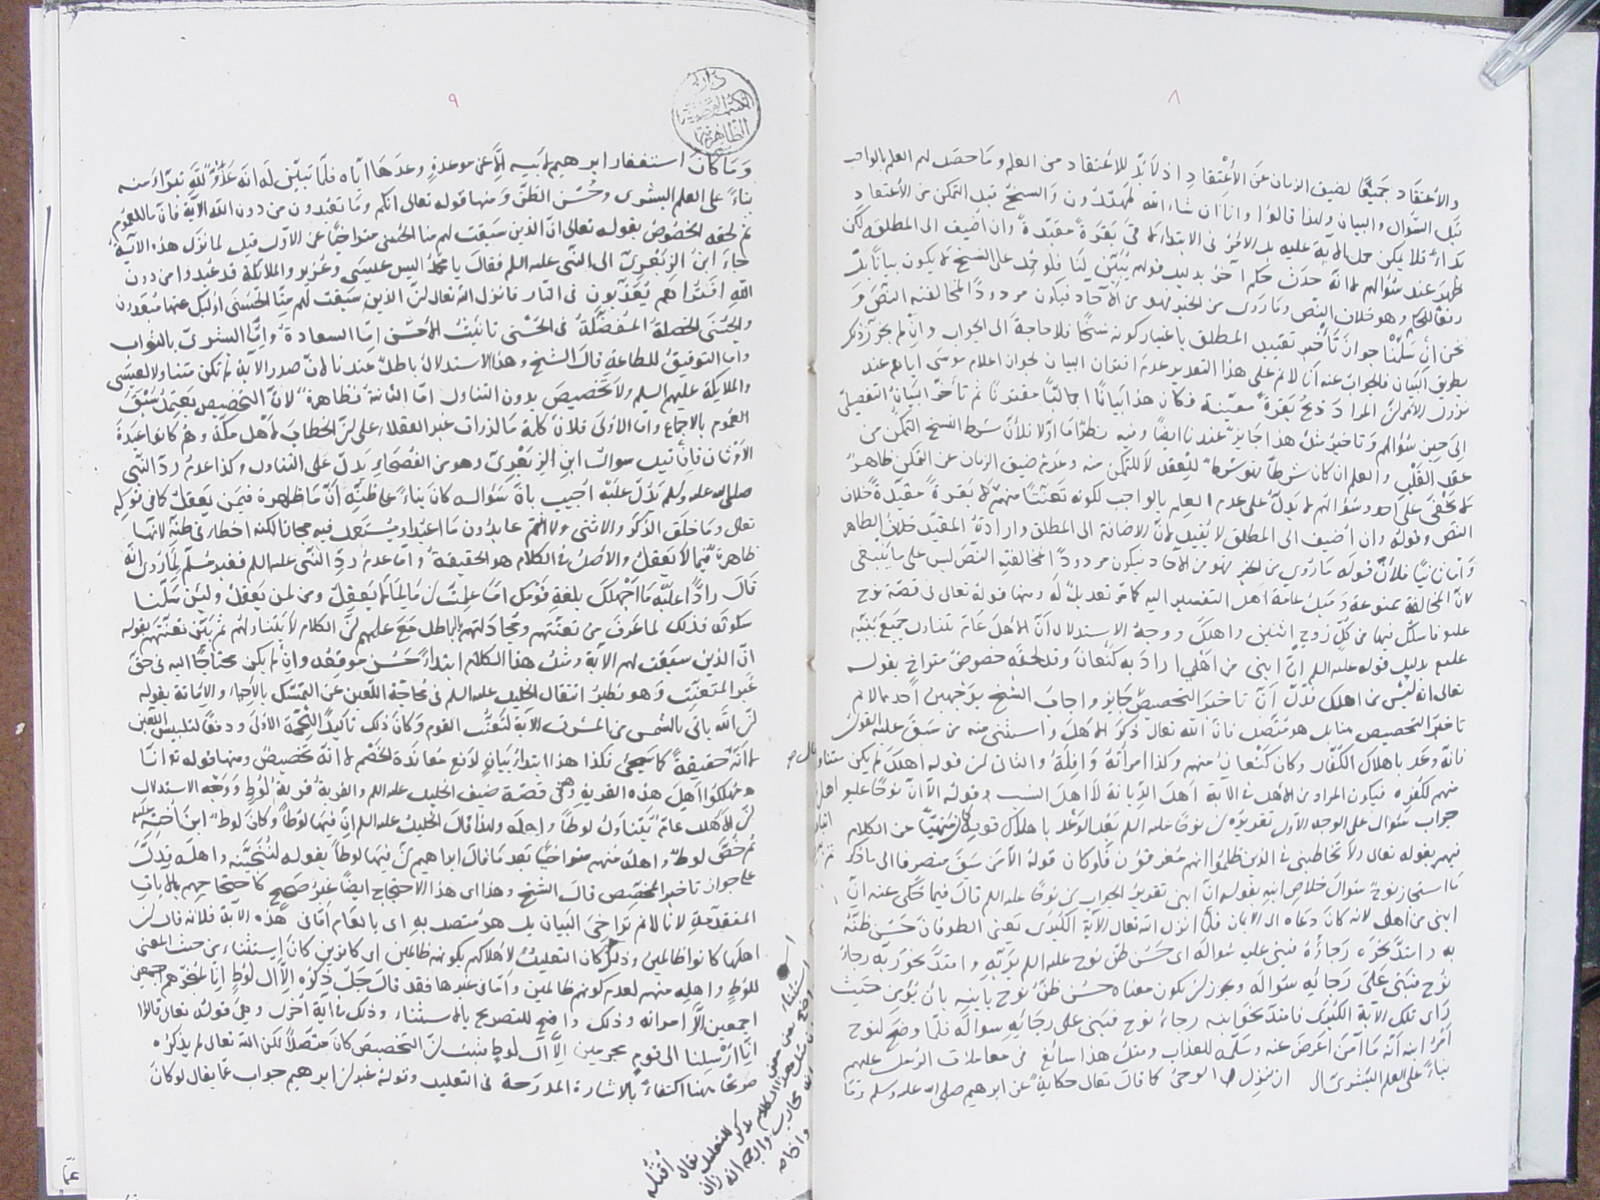 ٨
والاعتقاد جميعًا لضيق الزمان عن الاعتقاد اذ لا بدّ للاعتقاد من العلم وما حصل لهم العلم بالواجب
قبل السّؤال والبيان ولهذا قالوا وانا ان شاء الله لمهتدون والنسخ قبل التمكن من الاعتقاد
بداء فلا يمكن حمل الآية عليه بل الامر في الابتداء لاقى بقرة مقيّدة وان اضيف الى المطلق لكن
ظهر عند سؤالهم لا انه حدث حكم آخر بدليل قولهم يُبيّن لنا فلو حُمل على النسخ لا يكون بيانًا بل
رفعًا للحكم وهو خلاف النص وما روى من الخبر فهو من الآحاد فيكون مردودًا لمخالفته النصّ و
نحن ان سلّمنا جواز تأخير تقييد المطلق باعتبار كونه نسخًا فلا حاجة الى الجواب وان لم نجوّز ذكر
بطريق البيان فالجواب عنه انا لا نم على هذا التقدير عدم اقتران البيان لجواز اعلام موسى اياهم عند
نزول الامر لن المراد ذبح بقرة معيّنة فكان هذا بيانًا اجماليًّا مقترنًا ثم تأخر البيان التفصيلي
الى حين سؤالهم وتأخير مثل هذا جايز عندنا ايضًا وفيه نظر امّا اوّلا فلأن شرط النسخ التمكّن من
عقد القلب والعلم ان كان شرطًا فهو شرط للعقد لا للتمكّن منه وعدم ضيق الزمان عن التمكن ظاهر
لا يخفى على احد وسؤالهم لا يدلّ على عدم العلم بالواجب لكونه تعنّتًا منهم لا بقرة مقيّدة خلاف
النص وقوله وان أضيف الى المطلق لا يُفيد لانّ الاضافة الى المطلق وارادة المقيّد خلاف الظاهر
وامّا ثانيًا فلأنّ قوله ما روي من الخبر فهو من الآحاد فيكون مردودًا لمخالفته النصّ ليس على ما ينبغي
لانّ المخالفة ممنوعة وميل عامة اهل التفسير اليه كافٍ تعديلٌ له ومنها قوله تعالى في قصّة نوح
عليه السلام فاسلك فيها من كلّ زوجين اثنين واهلك ووجه الاستدلال انّ الاهل عامّ يتناول جميع بنيه
عليه السلام بدليل قوله عليه السلم انّ ابني من اهلي اراد به كنعان وقد لحقه خصوصٌ متراخٍ بقوله
تعالى انه ليس من اهلك فدلّ انّ تاخير التخصيص جايز واجاب الشيخ بوجهين احدهما لا نم
تاخر التخصيص بل هو متصل فان الله تعالى ذكر الاهل واستثنى منه من سبق عليه القول
فانه وعد باهلاك الكفّار وكان كنعان منهم وكذا امرأته وافلة والثاني لن قوله اهلك لم يكن
منهم لكفره فيكون المراد من الاهل في الآية اهل الديانة لا اهل النسب وقوله الّا انّ نوحًا عليه
جواب سؤال على الوجه الاول تقديره لن نوحًا عليه السلم بعد الوعد باهلاك قومه كان منهيًّا عن الكلام
فيهم بقوله تعالى ولا تخاطبني في الذين ظلموا انهم مغرقون فلو كان قوله الّا من سبق منصرفا الى ما ذكر
ما استجاز نوح سؤال خلاص ابنه بقوله انّ ابني تقرير الجواب لن نوحًا عليه السلم قال فيما حكى عنه انّ
ابني من اهلي لانه كان دعاه الى الايمان فلمّا انزل الله تعالى الآية الكبرى يعني الطوفان حسن ظنّه
به وامتدّ نحوه رجاؤه فبنى عليه سؤاله اي حسن ظنّ نوح عليه السلم بربّه وامتدّ نحو ربّه رجاء
نوح فبنى على رجائه سؤاله ويجوز لن يكون معناه حسن ظنّ نوح بابنه بأن يؤمن حيث
رأى تلك الآية الكبرى فامتدّ نحو ابنه رجاء نوح فبنى على رجائه سؤاله فلمّا وضح لنوح
أمرُ ابنه انّه ما آمن اعرض عنه وسلّمه للعذاب ومثل هذا سائغ في معاملات الرسل عليهم
بناءً على العلم البشريّ الى ان ينزل الوحيُ كما قال تعالى حكاية عن ابرهيم صلى الله عليه وسلم وما
٩
دار الكتب الظاهرية
وما كان استغفار ابرهيم لأبيه إلّا عن موعدة وعدها اياه فلمّا تبيّن له انه عدوٌّ للّه تبرّأ منه
بناءً على العلم البشرى وحُسن الظنّ ومنها قوله تعالى انكم وما تعبدون من دون الله الآية فانّ ما للعموم
ثم لحقه الخصوص بقوله تعالى انّ الذين سبقت لهم منا الحُسنى متراخيًا عن الاوّل قيل لما نزل هذه الآية
جاءَ ابنُ الزِبَعْرى الى النّبي عليه السلم فقال يا محمّد اليس عيسى وعُزير والملائكة قد عُبدوا من دون
الله افتراهم يعذّبون في النار فانزل الله تعالى لنّ الذين سبقت لهم منّا الحُسنى اوليك عنها مبعدون
والحُسنى الخصلة المُفضّلة في الحُسن تأنيث الأحسن إمّا السعادة وإمّا البشرى بالثواب
وامّا التوفيق للطاعة قال الشيخ وهذا الاستدلال باطل عندنا لانّ صدر الآية لم تكن متناولا لعيسى
والملائكة عليهم السلم ولا تخصيص بدون التناول امّا الثانية فظاهرة لأنّ التخصيص يعتمدُ سَبْقَ
العموم بالاجماع وامّا الاُولى فلأنّ كلمة ما لذوات غير العقلاء على لنّ الخطاب لأهل مكّة وهم كانوا عبدة
الاوثان فإن قيل سؤال ابن الزبعرى وهو من الفصحاء يدلّ على التناول وكذا عدم ردّ النّبي
صلى الله عليه وسلم يدلّ عليه اجيب بأنّ سؤاله كان بناءً على ظنّه أنّ ما ظاهرة فيمن يعقل كما في قوله
تعالى وما خلق الذكر والانثى ولا انتم عابدون ما اعبد او يستعمل فيه مجازا لكنه اخطأ في ظنّه لانّها
ظاهرة فيما لا يعقل والأصل في الكلام هو الحقيقة وامّا عدم ردّ النّبي عليه السلم فغير مُسلّم لما رُوى انّه
قال رادًّا عليه ما اجهلك بلغة قومك اما علمت لن ما لِما لا يعقل ومن لمن يعقل ولئن سلّمنا
سكوته فذلك لما عرف من تعنّتهم ومجادلتهم بالباطل مع علمهم لنّ الكلام لا يتناولهم ثم بيّن تعنّتهم بقوله
انّ الذين سبقت لهم الآية ومثل هذا الكلام ابتداءً حَسُن موقعه وان لم يكن محتاجًا اليه في حقّ
غير المتعنّت وهو نظير انتقال الخليل عليه السلم في محاجّة اللعين عن التمسّك بالاحياء والإماتة بقوله
لنّ الله يأتي بالشمس من المشرق الآية لتعنّت القوم وكان ذلك تأكيدًا للحجّة الاولى ودفعًا لتلبيس اللعين
لا انّه حقيقة كما سيجيء فكذا هذا ابتداء بيان لدفع معاندة الخصم لا انّه تخصيصٌ ومنها قوله تع انّا
مهلكوا اهل هذه القرية وهي قصّة ضيف الخليل عليه السلم والقرية قرية لُوط ووجه الاستدلال
لنّ الاهل عامّ يتناول لوطًا واهله ولذا قال الخليل عليه السلم انّ فيها لوطًا وكان لوطٌ ابن أخته
ثم خصّ لوط واهله منهم متراخيًا بعد ما قال ابراهيم لنّ فيها لوطًا بقوله لننجّينّه واهله يدلّ
على جواز تاخير المخصّص قال الشيخ وهذا اي هذا الاحتجاج ايضًا غير صحيح كاحتجاجهم بالآيات
المتقدّمة لانّا لا نم تراخي البيان بل هو متصل به اى بالعام امّا في هذه الآية فلانه قال لن
اهلها كانوا ظالمين وذكر كان التعليل لاهلاكهم بكونهم ظالمين اى كافرين كان استثناء من حيث المعنى
للوط واهله منهم لعدم كونهم ظالمين وأمّا في غيرها فقد قال جلّ ذكره الّا آل لوط انّا لمنجّوهم اجمعين
اجمعين الّا امرأته وذلك واضح للتصريح بالاستثناء وذلك في آية أخرى وهي قوله تعالى قالوا
انّا ارسلنا الى قوم مجرمين الّا آل لوط فثبت لنّ التخصيص كان متّصلًا لكن الله تعالى لم يذكره
صريحًا ههنا اكتفاءً بالاشارة المدرجة في التعليل وقوله غير لن ابرهيم جواب عمّا يقال لو كان